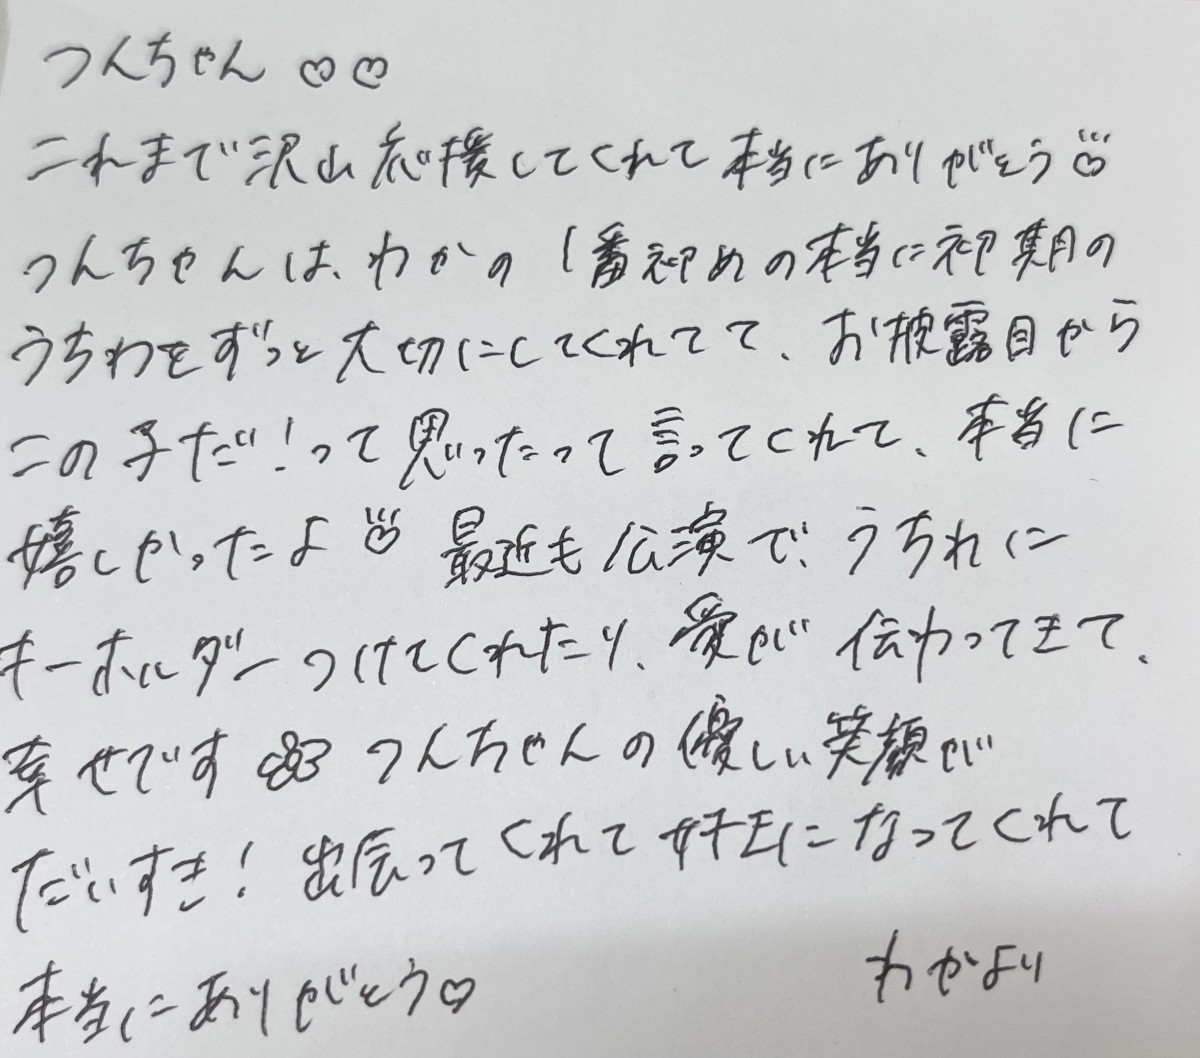 つんちゃん♡♡
これまで沢山応援してくれて本当にありがとう♡
つんちゃんは、わかの1番初めの本当に初期の
うちわをずっと大切にしてくれてて、お披露目から
この子だ!って思ったって言ってくれて、本当に
嬉しかったよ♡ 最近も公演で、うちわに
キーホルダーつけてくれたり、愛が伝わってきて、
幸せです つんちゃんの優しい笑顔が
だいすき!出会ってくれて好きになってくれて
本当にありがとう♡ わかより